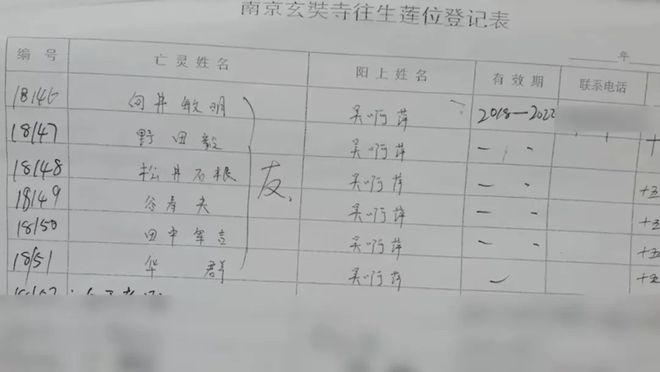 南京玄奘寺往生莲位登记表
年
编号 亡灵姓名 阳上姓名 有效期 联系电话
18146 向井敏明 吴啊萍 2018—2022
18147 野田毅 吴啊萍 — - 十
18148 松井石根 友 吴啊萍 — - 十五
18149 谷寿夫 吴啊萍 — - 十五
18150 田中军吉 吴啊萍 — - 十五
18151 华群 吴啊萍 — 十五